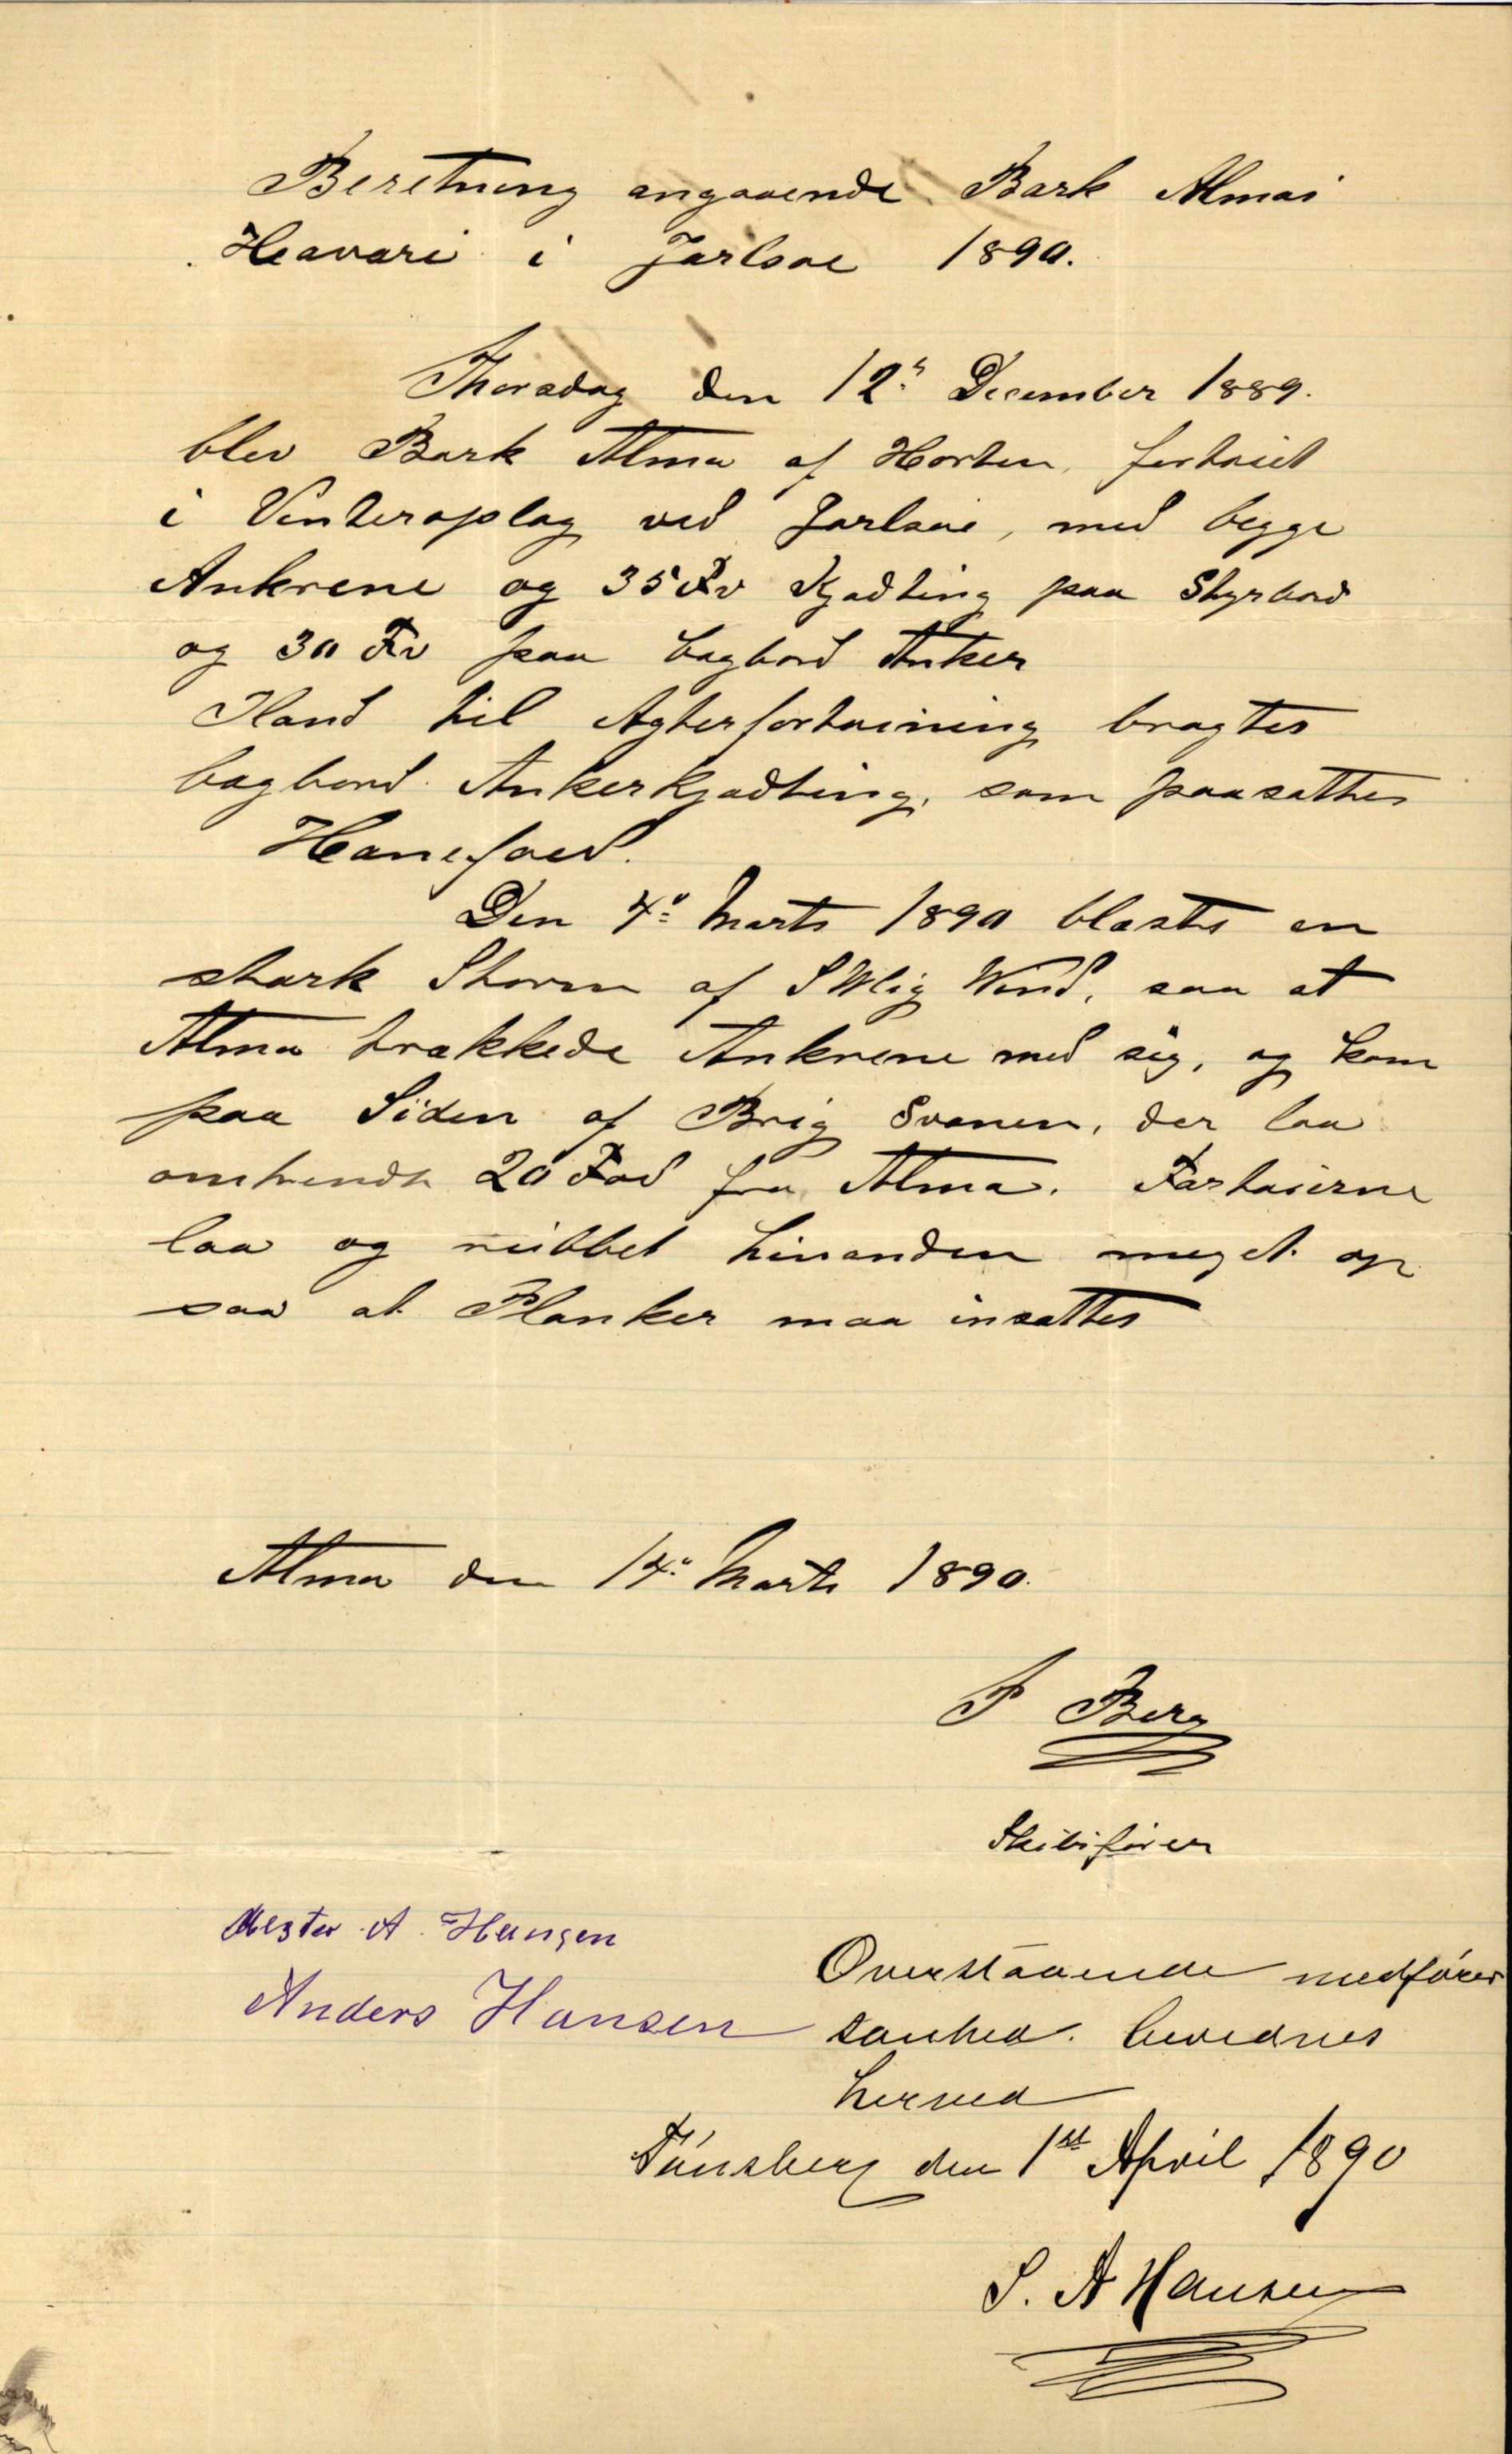 Beretning angaaende Bark Almas
Havari i Jarlsøe 1890.
Thorsdag den 12te December 1889.
blev Bark Alma af Horten, fortøiet
i Vinteroplag ved Jarlsøe, med begge
Ankrene og 35 Fv Kjædting paa Styrbord
og 30 Fv paa bagbord Anker
Iland til Agterfortøining bragtes
bagbord Ankerkjædting, som paasattes
Hanefoed.
Den 4de Marts 1890 blæste en
stærk Storm af SWlig Vind, saa at
Alma trækkede Ankrene med sig, og kom
paa Siden af Brig Svanen, der laa
omtrendt 20 Fod fra Alma. Fartøierne
laa og nübbet hinanden meget op
saa at Planker maa insættes
Alma den 14de Marts 1890.
P Berg
Skibsfører
Mester A. Hansen
Anders Hansen
Overstaaende medfører
sanhed. bevidnes
herved
Tönsberg den 1st April 1890
S. A Hansen